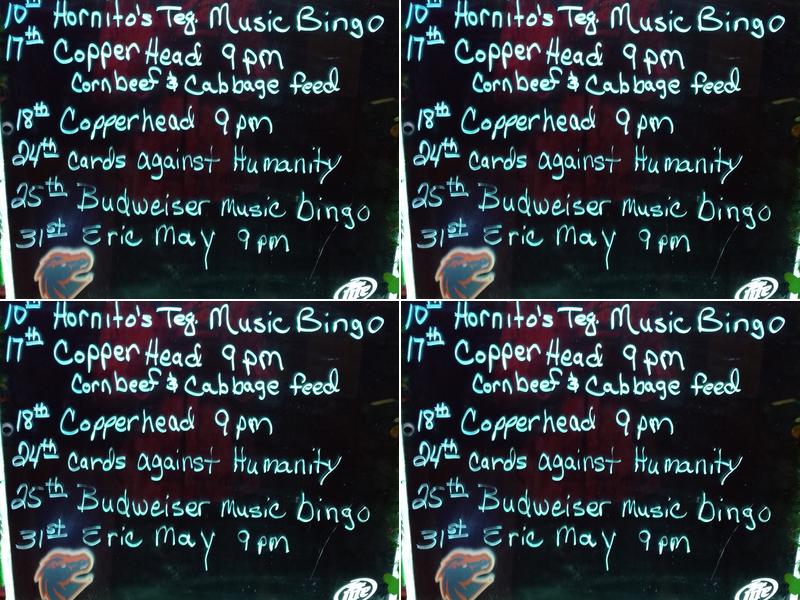 10th Hornito's Teq. Music Bingo
17th Copper Head 9pm
Cornbeef & Cabbage feed
18th Copperhead 9pm
24th Cards against Humanity
25th Budweiser music bingo
31st Eric May 9pm
Lite
10th Hornito's Teq. Music Bingo
17th Copper Head 9pm
Cornbeef & Cabbage feed
18th Copperhead 9pm
24th Cards against Humanity
25th Budweiser music bingo
31st Eric May 9pm
Lite
10th Hornito's Teq. Music Bingo
17th Copper Head 9pm
Cornbeef & Cabbage feed
18th Copperhead 9pm
24th Cards against Humanity
25th Budweiser music bingo
31st Eric May 9pm
Lite
10th Hornito's Teq. Music Bingo
17th Copper Head 9pm
Cornbeef & Cabbage feed
18th Copperhead 9pm
24th Cards against Humanity
25th Budweiser music bingo
31st Eric May 9pm
Lite